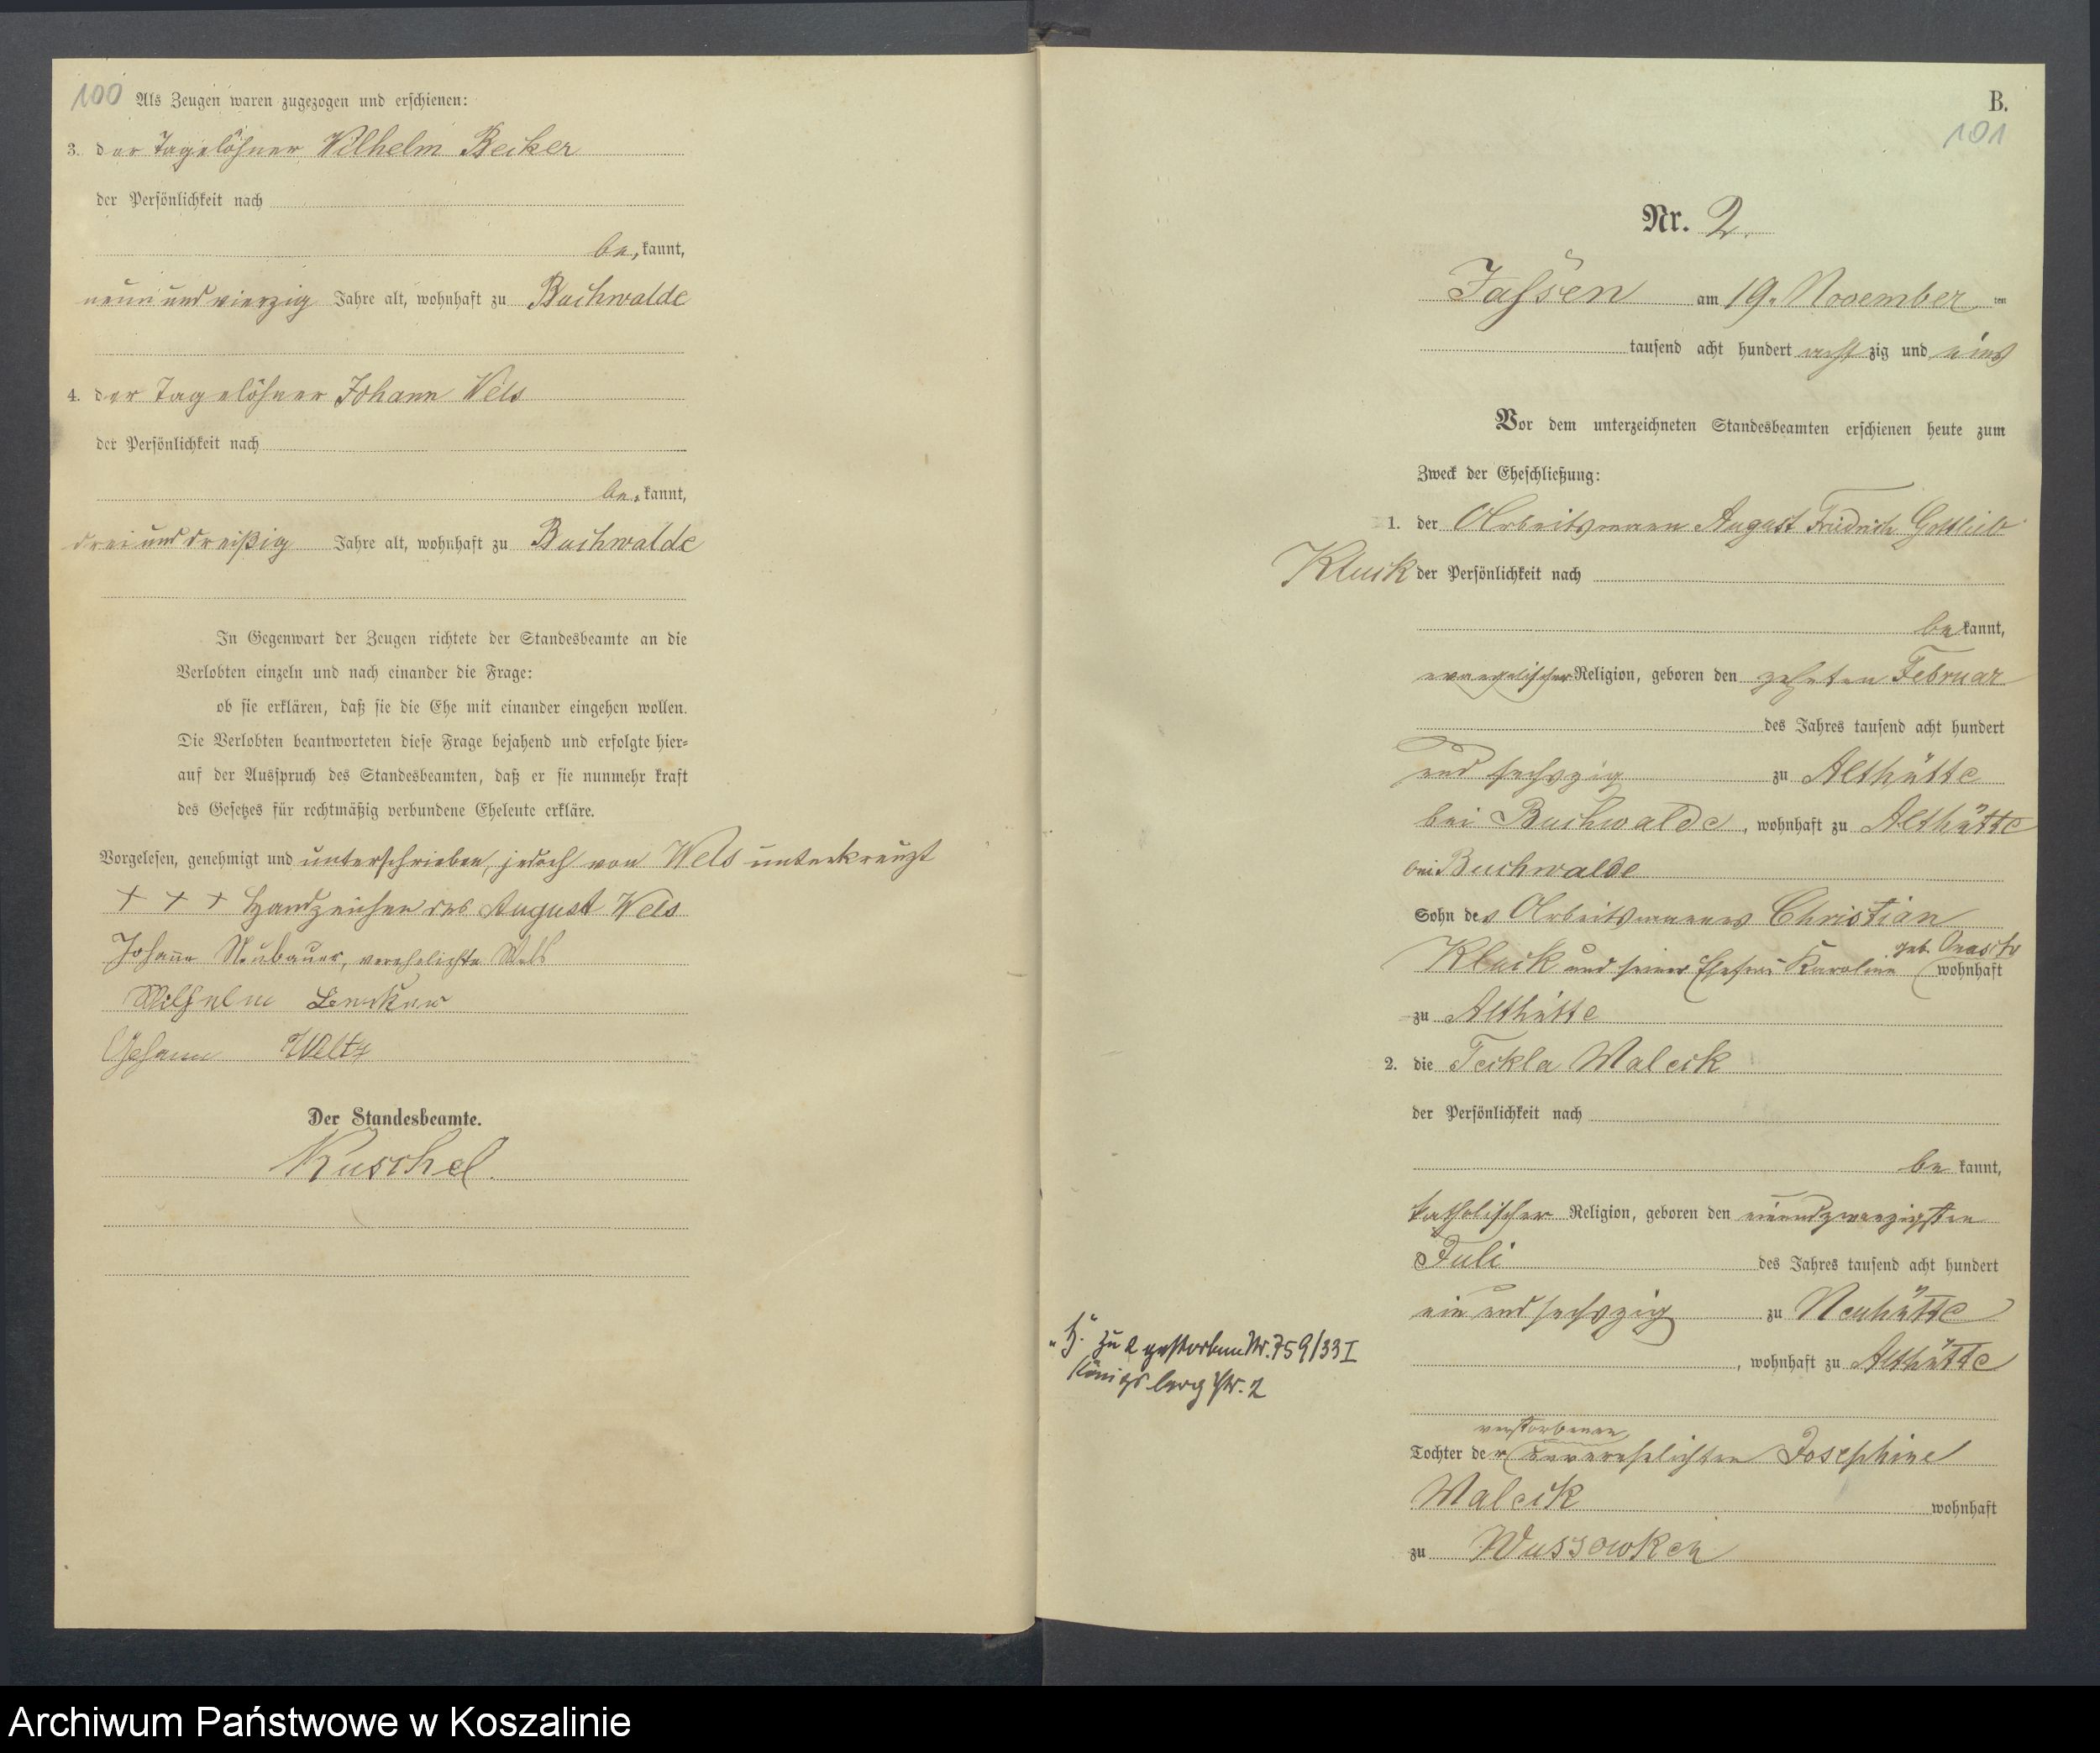 100 Als Zeugen waren zugezogen und erschienen:
3. der Tagelöhner Wilhelm Becker
der Persönlichkeit nach
be, kannt,
neun und vierzig Jahre alt, wohnhaft zu Buchwalde
4. der Tagelöhner Johann Wels
der Persönlichkeit nach
be, kannt,
drei und dreißig Jahre alt, wohnhaft zu Buchwalde
In Gegenwart der Zeugen richtete der Standesbeamte an die
Verlobten einzeln und nach einander die Frage:
ob sie erklären, daß sie die Ehe mit einander eingehen wollen.
Die Verlobten beantworteten diese Frage bejahend und erfolgte hier-
auf der Ausspruch des Standesbeamten, daß er sie nunmehr kraft
des Gesetzes für rechtmäßig verbundene Eheleute erkläre.
Vorgelesen, genehmigt und unterschrieben, jedoch von Wels unterkreuzt
+ + + Handzeichen des August Wels
Johanna Neubauer, verehelichte Wels
Wilhelm
Johann Weltz
Der Standesbeamte.
Kuschel.
B.
101
Nr. 2.
Jassen am 19. November ten
tausend acht hundert acht zig und eins
Vor dem unterzeichneten Standesbeamten erschienen heute zum
Zweck der Eheschließung:
1. der Arbeitsmann August Friedrich Gottlieb
Kluck der Persönlichkeit nach
be kannt,
evangelischer Religion, geboren den zehnten Februar
des Jahres tausend acht hundert
und sechszig zu Althütte
bei Buchwalde, wohnhaft zu Althütte
bei Buchwalde
Sohn des Arbeitsmannes Christian
Kluck und seiner Ehefrau Karoline geb. wohnhaft
zu Althütte
2. die Teckla Waleck
der Persönlichkeit nach
be kannt,
katholischer Religion, geboren den einundzwanzigsten
Juli des Jahres tausend acht hundert
ein und sechszig zu Neuhütte
, wohnhaft zu Althütte
verstorbenen
Tochter der unverehelichten Josephine
Waleck wohnhaft
zu Wussowken
„H." zu 2 gestorben Nr. 759/33 I
Königsberg Pr. 2
Archiwum Państwowe w Koszalinie